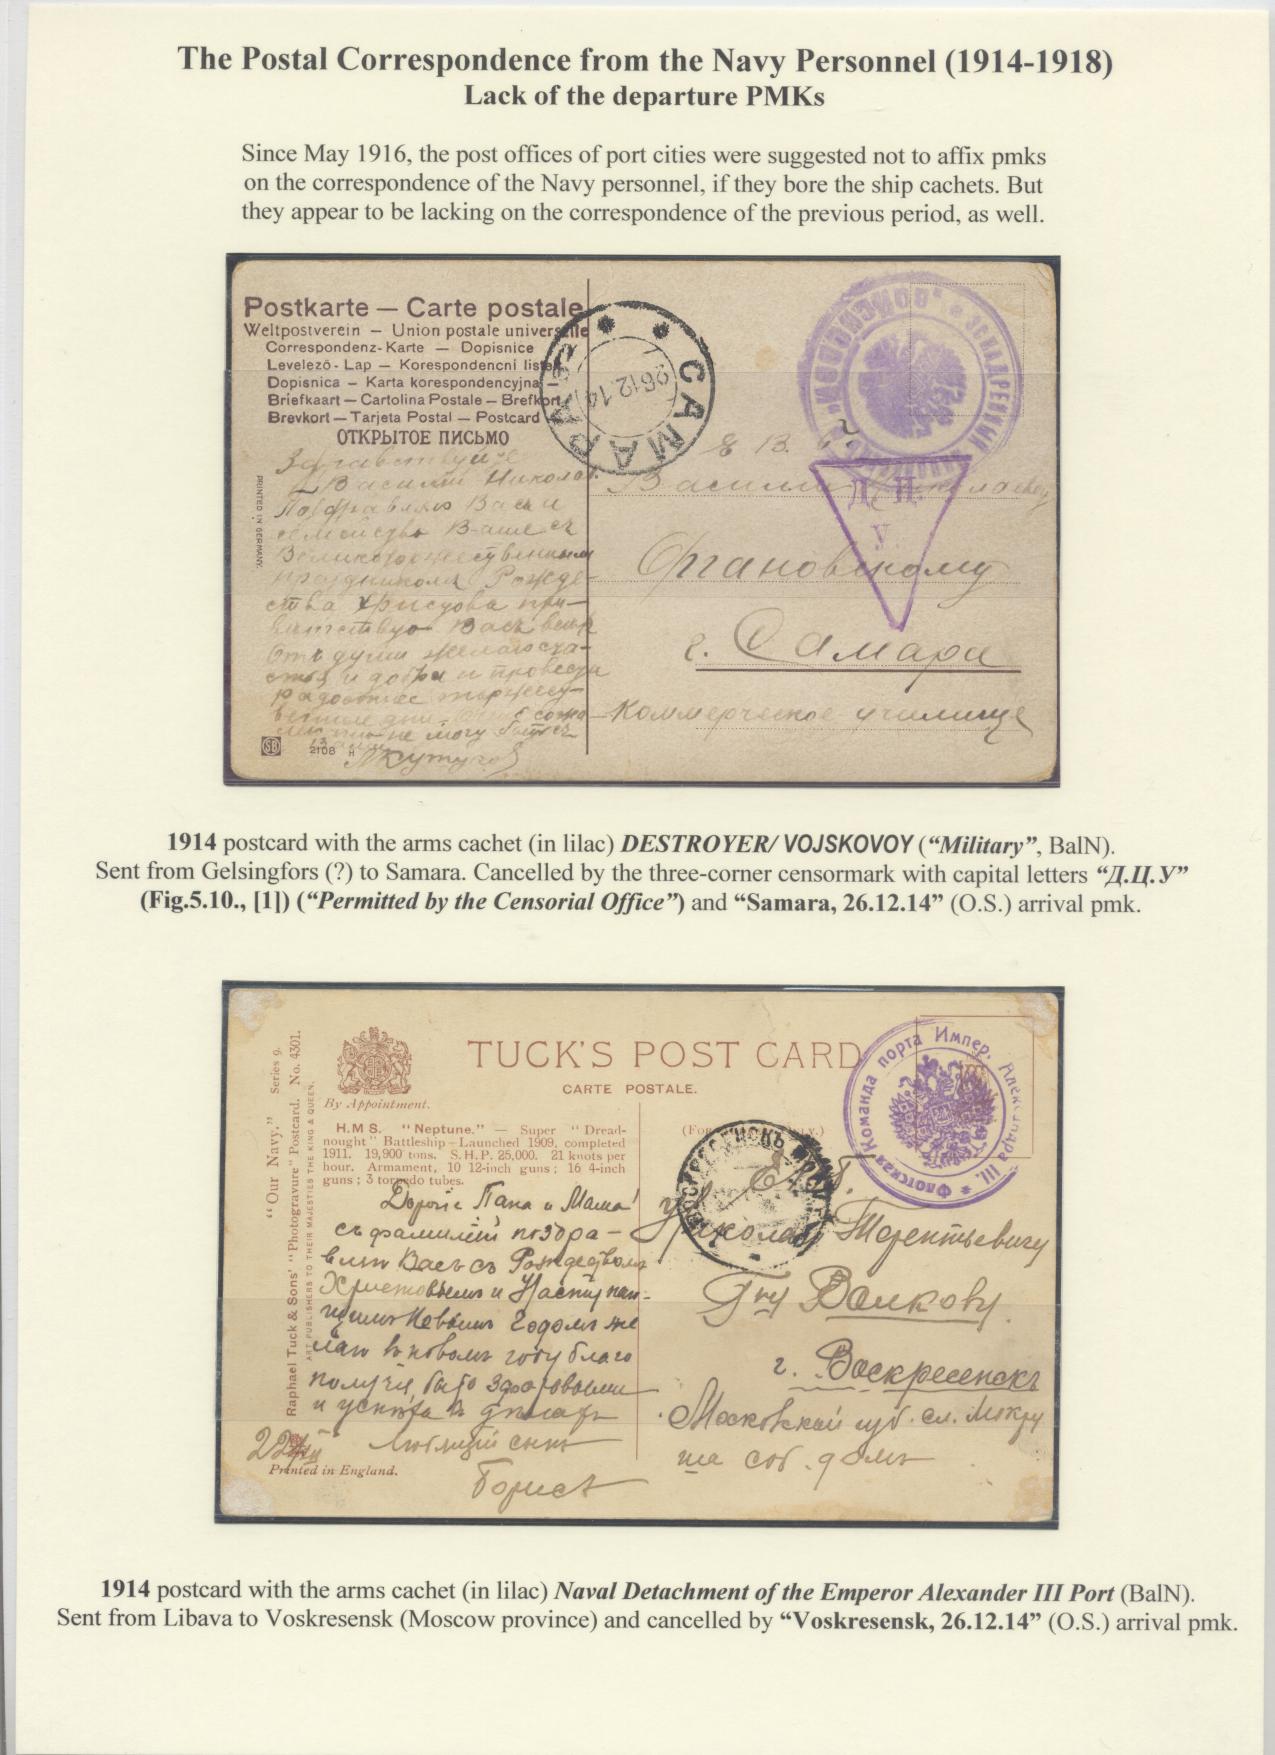 The Postal Correspondence from the Navy Personnel (1914-1918)
Lack of the departure PMKs
Since May 1916, the post offices of port cities were suggested not to affix pmks
on the correspondence of the Navy personnel, if they bore the ship cachets. But
they appear to be lacking on the correspondence of the previous period, as well.
Postkarte — Carte postale
Weltpostverein — Union postale universelle
Correspondenz-Karte — Dopisnice
Levelező-Lap — Korespondencní listek
Dopisnica — Karta korespondencyjna —
Briefkaart — Cartolina Postale — Brefkort
Brevkort — Tarjeta Postal — Postcard —
ОТКРЫТОЕ ПИСЬМО
PRINTED IN GERMANY.
САМАРА
26 12. 14
Здравствуйте
Василий Николаев.
Поздравляю Васъ и
семейство Ваше съ
Великорожественным
праздником Рожде-
ства Христова при-
ветствую Васъ
Отъ души желаю сча-
стья и добра и провести
радостные торжест-
венные дни.
не могу
SB 2108 H
Е В.
Василию Николаевичу
Д. Ц.
У.
Органовскому
г. Самара
Коммерческое училище
1914 postcard with the arms cachet (in lilac) DESTROYER/ VOJSKOVOY (“Military”, BalN).
Sent from Gelsingfors (?) to Samara. Cancelled by the three-corner censormark with capital letters “Д.Ц.У”
(Fig.5.10., [1]) (“Permitted by the Censorial Office”) and “Samara, 26.12.14” (O.S.) arrival pmk.
“Our Navy.” Series 9.
Raphael Tuck & Sons’ “Photogravure” Postcard. No. 4301.
ART PUBLISHERS TO THEIR MAJESTIES THE KING & QUEEN.
By Appointment.
TUCK'S POST CARD
CARTE POSTALE.
H.M.S. “Neptune.” — Super “Dread-
nought” Battleship — Launched 1909, completed
1911. 19,900 tons. S.H.P. 25,000. 21 knots per
hour. Armament, 10 12-inch guns; 16 4-inch
guns; 3 torpedo tubes.
Флотская Команда порта Импер. Александра III.
ВОСКРЕСЕНСКЪ
Дорогіе Папа и Мама!
съ фамиліей поздра-
вляю Васъ съ Рождеством
Христовымъ и Наступаю-
щимъ Новымъ Годомъ же
лаю въ новомъ году благо
получія, быть здоровыми
и успѣха въ дѣлахъ
Любящій сынъ
Борисъ
Printed in England.
Е. В. б.
Николаю Терентьевичу
Г-ну Волкову.
г. Воскресенскъ
Московской губ.
соб. домъ
1914 postcard with the arms cachet (in lilac) Naval Detachment of the Emperor Alexander III Port (BalN).
Sent from Libava to Voskresensk (Moscow province) and cancelled by “Voskresensk, 26.12.14” (O.S.) arrival pmk.